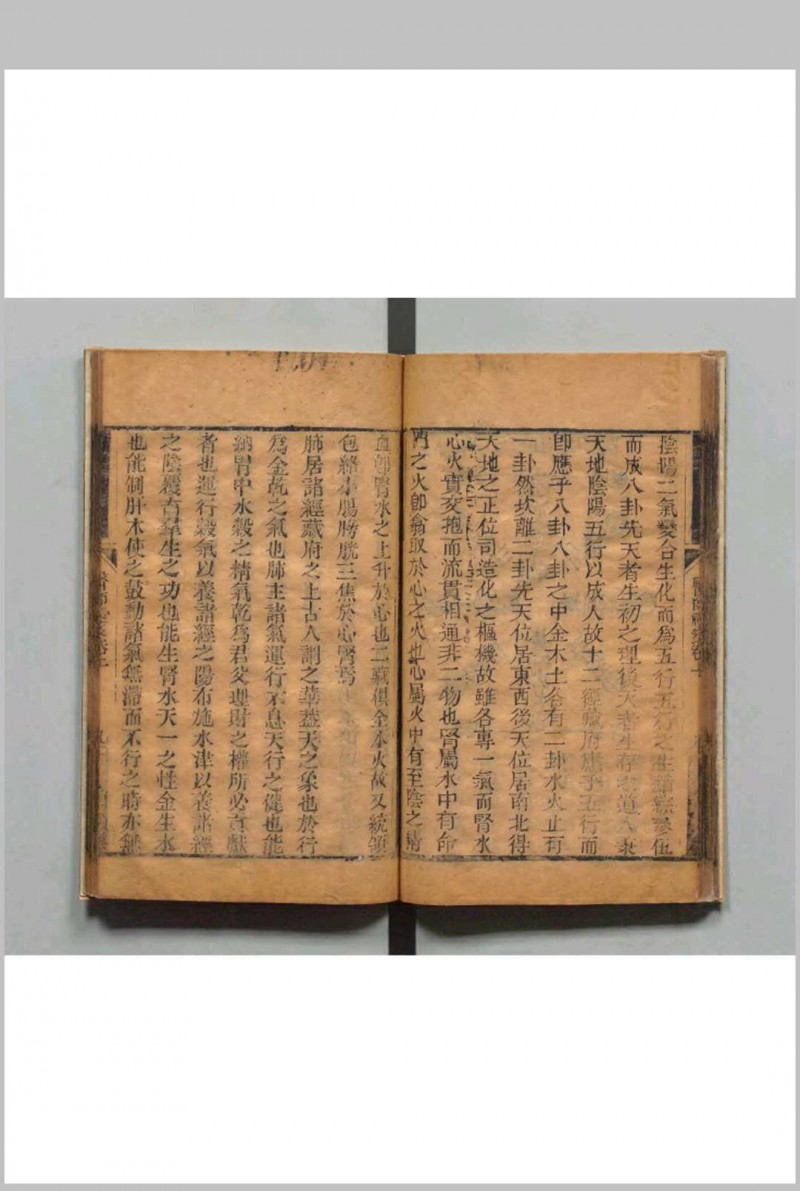 陰陽二氣變合生化而爲五行五行之生錯綜參伍
而成八卦先天者生初之理後天者生存之道人秉
天地陰陽五行以成人故十二經藏府應乎五行而
卽應乎八卦八卦之中金木土各有二卦水火止有
一卦然坎離二卦先天位居東西後天位居南北得
天地之正位司造化之樞機故雖各專一氣而腎水
心火實交抱而流貫相通非二物也腎屬水中有命
門之火卽翕取於心之火也心屬火中有至陰之精
血卽腎水之上升於心也二藏俱全水火故又統領
包絡小腸膀胱三焦於心腎焉
肺居諸經藏府之上古人謂之華蓋天之象也於行
爲金乾之氣也肺主諸氣運行不息天行之健也能
納胃中水穀之精氣乾爲君父理財之權所必貢獻
者也運行穀氣以養諸經之陽布施水津以養諸經
之陰覆育羣生之功也能生腎水天一之性金生水
也能制肝木使之鼓動諸氣無滯而不行之時亦無